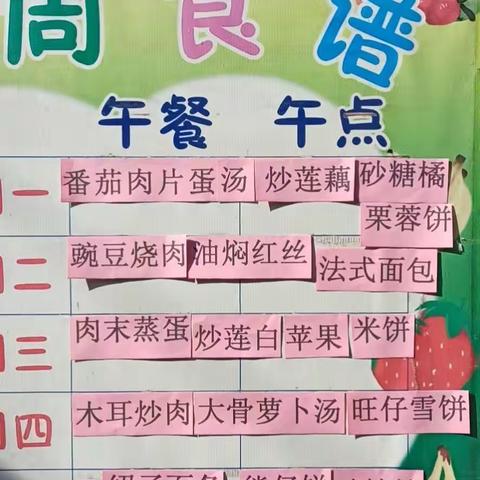 周食谱
午餐 午点
一 番茄肉片蛋汤 炒莲藕 砂糖橘
栗蓉饼
二 豌豆烧肉 油焖红丝 法式面包
三 肉末蒸蛋 炒莲白 苹果 米饼
四 木耳炒肉 大骨萝卜汤 旺仔雪饼